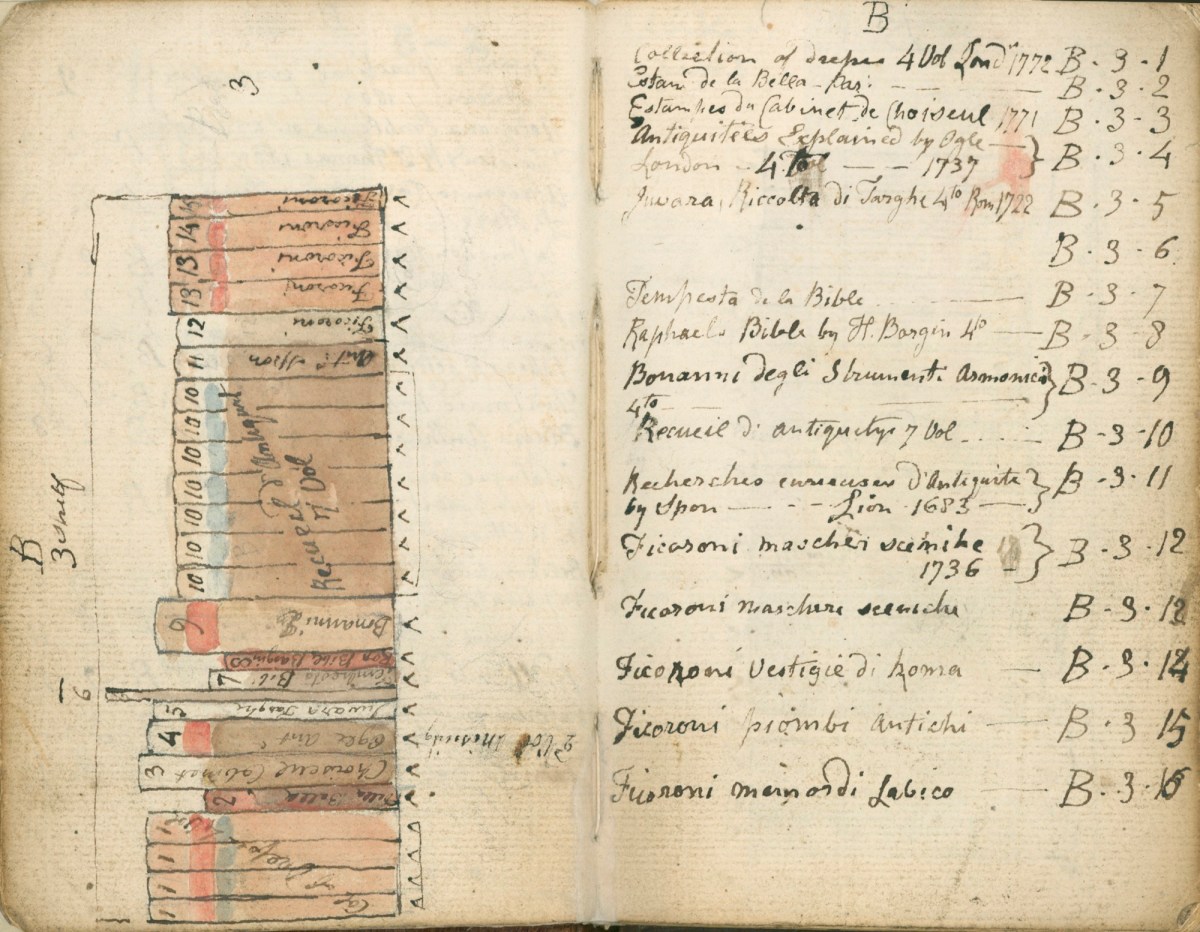 3
B
3 shelf
6
15 Ficoroni
14 Ficoroni
13 Ficoroni
13 Ficoroni
12 Ficoroni
11 Spon
10
10
10
10
10
10
10
Recueil d'Antiquit
7 Vol
9 Bonanni
Bible
7 Tempesta Bib
5 Juvara Targhe
4 Ogle Ant
3 Choiseul Cabinet
2 Della Bella
1
1
1
1
2 Vol
B
Collection of dreses 4 Vol Lond 1772 B - 3 - 1
Estam de la Bella - Par: B - 3 - 2
Estampes du Cabinet de Choiseul 1771 B - 3 - 3
Antiquitées Explained by Ogle
London - 4to Vol — 1737 } B - 3 - 4
Juvara, Riccolta di Targhe 4to Rom 1722 B - 3 - 5
B - 3 - 6
Tempesta de la Bible B - 3 - 7
Raphaels Bible by H. Borgin 4to B - 3 - 8
Bonanni degli Strumenti armonici
4to } B - 3 - 9
Recueil di antiquetys 7 Vol B - 3 - 10
Recherches curieuses d'Antiquite
by Spon — Lion 1683 } B - 3 - 11
Ficoroni mascheri scenike
1736 } B - 3 - 12
Ficoroni maschere sceniche B - 3 - 13
Ficoroni Vestigie di Roma B - 3 - 14
Ficoroni piombi antichi B - 3 15
Ficoroni memor di Labico B - 3 - 16